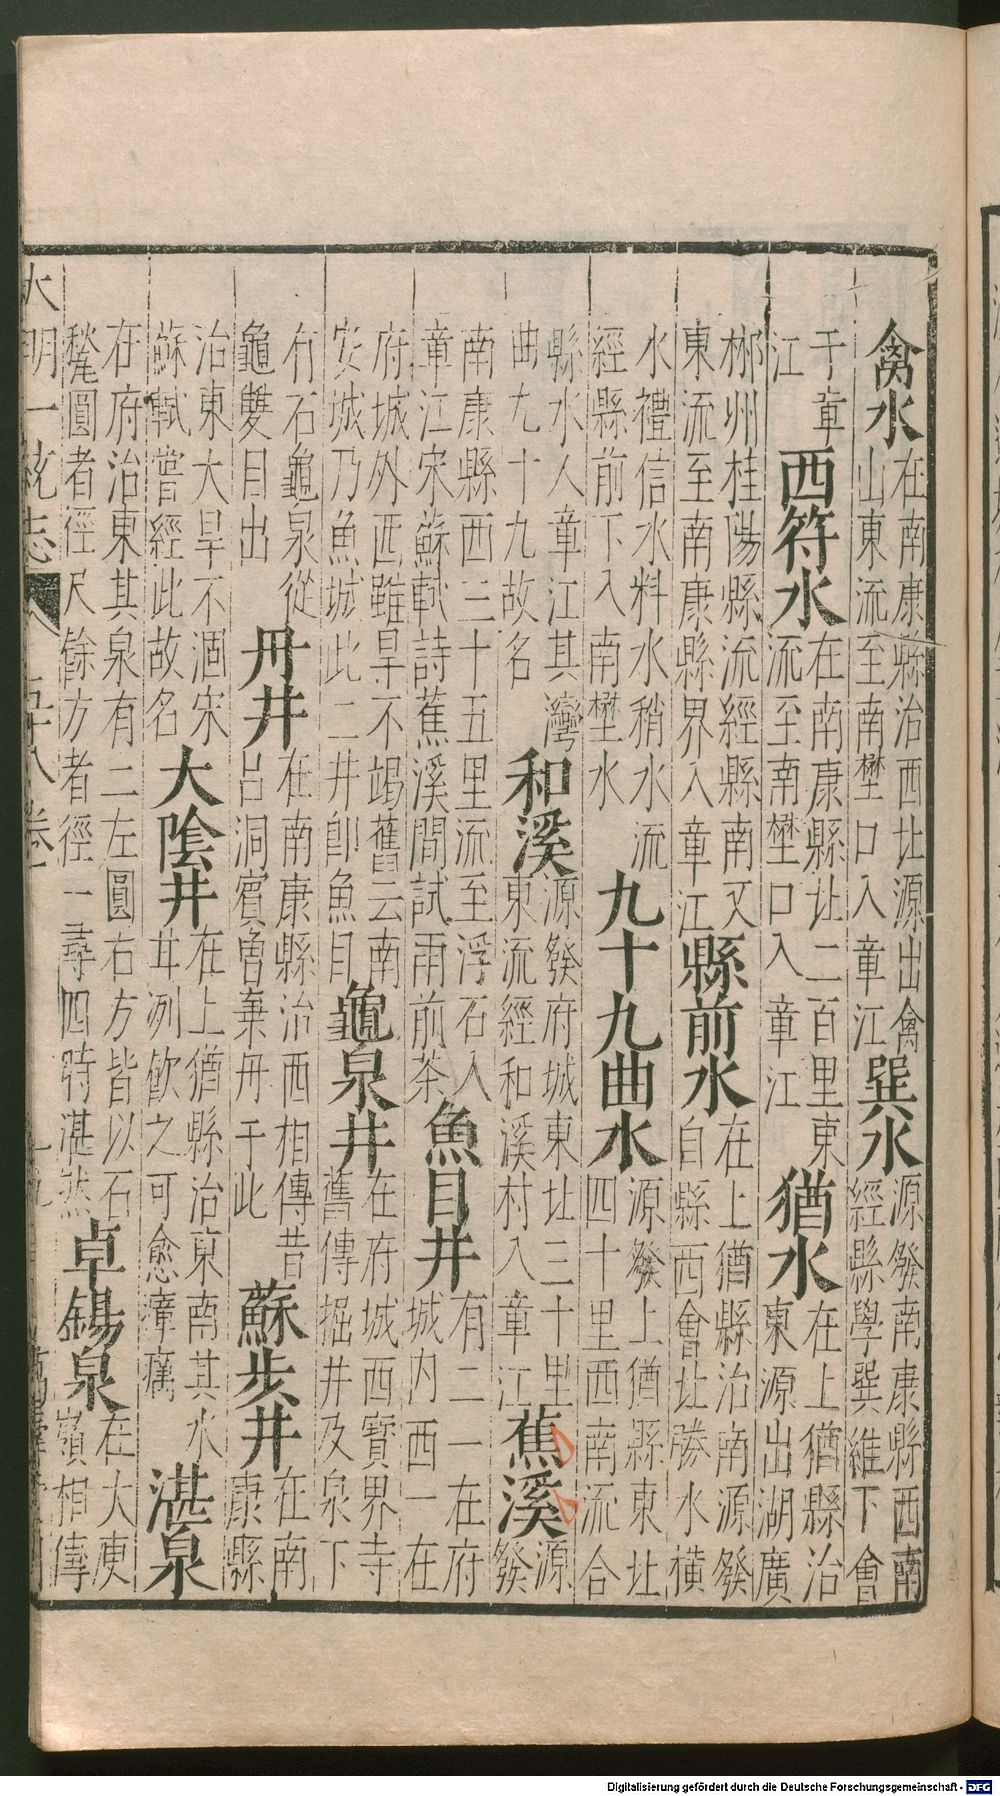 禽水
在南康縣治西北源出禽
山東流至南埜口入章江
巽水
源發南康縣西南
經縣學巽維下會
于章
江
西符水
在南康縣北二百里東
流至南埜口入章江
猶水
在上猶縣治
東源出湖廣
郴州桂陽縣流經縣南又
東流至南康縣界入章江
縣前水
在上猶縣治南源發
自縣西會北勝水橫
水禮信水料水稍水流
經縣前下入南埜水
九十九曲水
源發上猶縣東北
四十里西南流合
縣水入章江其灣
曲九十九故名
和溪
源發府城東北三十里
東流經和溪村入章江
蕉溪
源
發
南康縣西三十五里流至浮石入
章江宋蘇軾詩蕉溪閒試雨前茶
魚目井
有二一在府
城内西一在
府城外西雖旱不竭舊云南
安城乃魚城此二井卽魚目
龜泉井
在府城西寶界寺
舊傳掘井及泉下
有石龜泉從
龜雙目出
丹井
在南康縣治西相傳昔
呂洞賓曾棄丹于此
蘇步井
在南
康縣
治東大旱不涸宋
蘇軾嘗經此故名
大陰井
在上猶縣治東南其水
甘冽飲之可愈瘴癘
湛泉
在府治東其泉有二左圓右方皆以石
甃圓者徑尺餘方者徑一尋四時湛然
卓錫泉
在大庾
嶺相傳
大明一統志 五十八卷
Digitalisierung gefördert durch die Deutsche Forschungsgemeinschaft - DFG